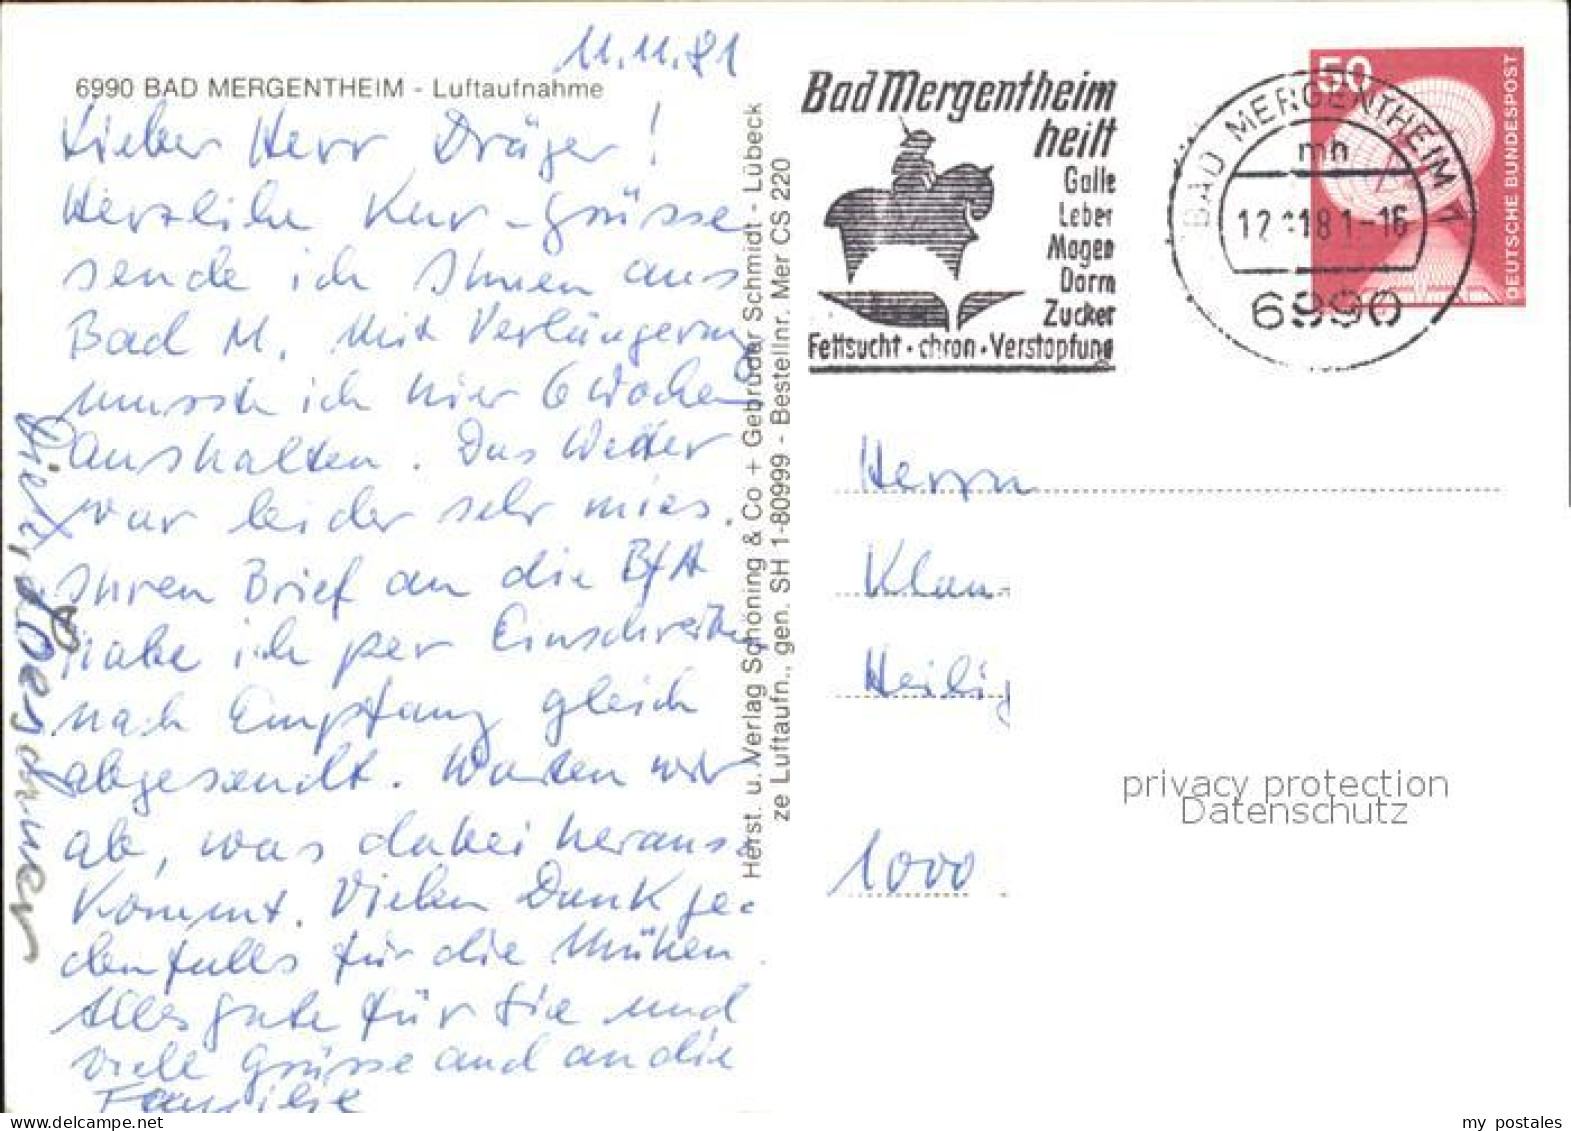 11.11.81
6990 BAD MERGENTHEIM - Luftaufnahme
Lieber Herr Dräger!
Herzliche Kur-Grüsse
sende ich Ihnen aus
Bad M. Mit Verlängerung
musste ich hier 6 Wochen
aushalten. Das Wetter
war leider sehr mies.
Ihren Brief an die BfA
habe ich per Einschreiben
nach Empfang gleich
abgesandt. Warten wir
ab, was dabei heraus
kommt. Vielen Dank je-
denfalls für die Mühen.
Alles gute für Sie und
viele Grüsse auch an die
Familie
Herst. u. Verlag Schöning & Co + Gebrüder Schmidt - Lübeck
ze Luftaufn., gen. SH 1-80999 - Bestellnr. Mer CS 220
Bad Mergentheim
heilt
Galle
Leber
Magen
Darm
Zucker
Fettsucht · chron · Verstopfung
BAD MERGENTHEIM 1
mn
81-16
6990
50
DEUTSCHE BUNDESPOST
Herrn
Klau
Heilig
privacy protection
Datenschutz
1000
my_postales